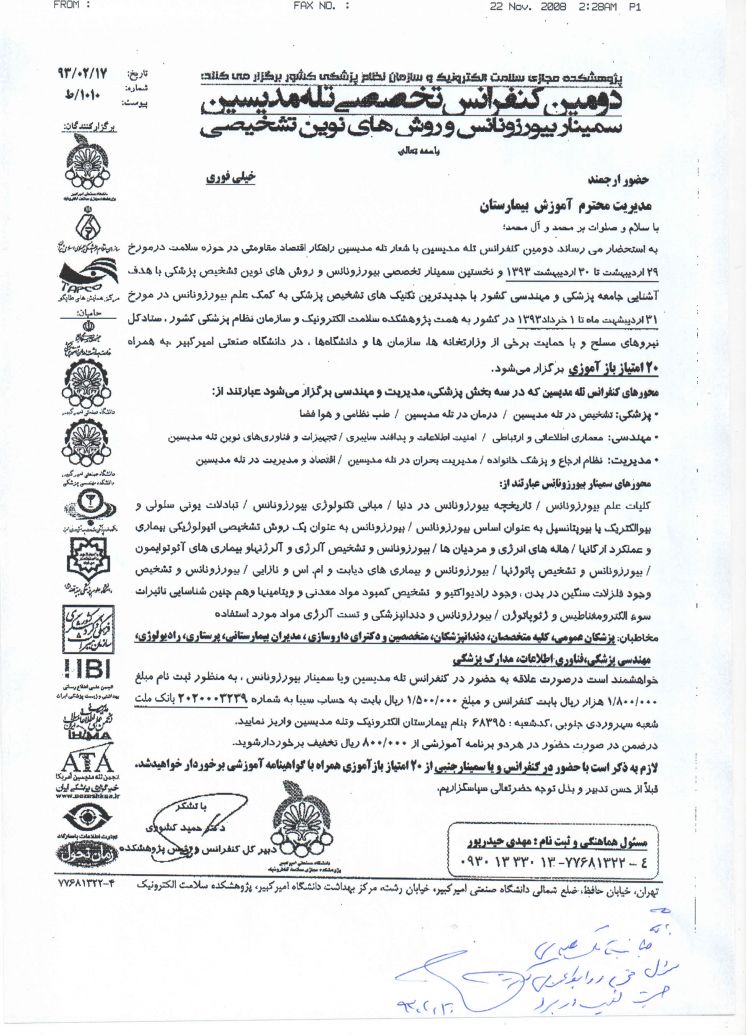 FROM : FAX NO. : 22 Nov. 2008 2:28AM P1
تاریخ: ۹۳/۰۲/۱۷
شماره: ۱۰۱۰/ط
پیوست:
پژوهشکده مجازی سلامت الکترونیک و سازمان نظام پزشکی کشور برگزار می کنند:
دومین کنفرانس تخصصی تله مدیسین
سمینار بیورزونانس و روش های نوین تشخیصی
باسمه تعالی
حضور ارجمند
خیلی فوری
مدیریت محترم آموزش بیمارستان
با سلام و صلوات بر محمد و آل محمد؛
به استحضار می رساند، دومین کنفرانس تله مدیسین با شعار تله مدیسین راهکار اقتصاد مقاومتی در حوزه سلامت درمورخ
۲۹ اردیبهشت تا ۳۰ اردیبهشت ۱۳۹۳ و نخستین سمینار تخصصی بیورزونانس و روش های نوین تشخیص پزشکی با هدف
آشنایی جامعه پزشکی و مهندسی کشور با جدیدترین تکنیک های تشخیص پزشکی به کمک علم بیورزونانس در مورخ
۳۱ اردیبهشت ماه تا ۱ خرداد۱۳۹۳ در کشور به همت پژوهشکده سلامت الکترونیک و سازمان نظام پزشکی کشور ، ستادکل
نیروهای مسلح و با حمایت برخی از وزارتخانه ها، سازمان ها و دانشگاهها ، در دانشگاه صنعتی امیرکبیر ،به همراه
۲۰ امتیاز باز آموزی برگزار می‌شود.
محورهای کنفرانس تله مدیسین که در سه بخش پزشکی، مدیریت و مهندسی برگزار می‌شود عبارتند از:
• پزشکی: تشخیص در تله مدیسین / درمان در تله مدیسین / طب نظامی و هوا فضا
• مهندسی: معماری اطلاعاتی و ارتباطی / امنیت اطلاعات و پدافند سایبری / تجهیزات و فناوری‌های نوین تله مدیسین
• مدیریت: نظام ارجاع و پزشک خانواده / مدیریت بحران در تله مدیسین / اقتصاد و مدیریت در تله مدیسین
محورهای سمینار بیورزونانس عبارتند از:
کلیات علم بیورزونانس / تاریخچه بیورزونانس در دنیا / مبانی تکنولوژی بیورزونانس / تبادلات یونی سلولی و
بیوالکتریک یا بیوپتانسیل به عنوان اساس بیورزونانس / بیورزونانس به عنوان یک روش تشخیصی اتیولوژیکی بیماری
و عملکرد ارگانها / هاله های انرژی و مردیان ها / بیورزونانس و تشخیص آلرژی و آلرژنهاو بیماری های آئوتوایمون
/ بیورزونانس و تشخیص پاتوژنها / بیورزونانس و بیماری های دیابت و ام.اس و نازایی / بیورزونانس و تشخیص
وجود فلزلات سنگین در بدن ، وجود رادیواکتیو و تشخیص کمبود مواد معدنی و ویتامینها وهم چنین شناسایی تاثیرات
سوء الکترومغناطیس و ژئوپاتوژن / بیورزونانس و دندانپزشکی و تست آلرژی مواد مورد استفاده
مخاطبان: پزشکان عمومی، کلیه متخصصان، دندانپزشکان، متخصصین و دکترای داروسازی ، مدیران بیمارستانی، پرستاری، رادیولوژی،
مهندسی پزشکی،فناوری اطلاعات، مدارک پزشکی
خواهشمند است درصورت علاقه به حضور در کنفرانس تله مدیسین ویا سمینار بیورزونانس ، به منظور ثبت نام مبلغ
۱/۸۰۰/۰۰۰ هزار ریال بابت کنفرانس و مبلغ ۱/۵۰۰/۰۰۰ ریال بابت به حساب سیبا به شماره ۲۰۲۰۰۰۳۲۳۹ بانک ملت
شعبه سهروردی جنوبی ،کدشعبه : ۶۸۳۹۵ بنام بیمارستان الکترونیک وتله مدیسین واریز نمایید.
درضمن در صورت حضور در هردو برنامه آموزشی از ۸۰۰/۰۰۰ ریال تخفیف برخوردارشوید.
لازم به ذکر است با حضور در کنفرانس و یا سمینارجنبی از ۲۰ امتیاز بازآموزی همراه با گواهینامه آموزشی برخوردار خواهیدشد.
قبلاً از حسن تدبیر و بذل توجه حضرتعالی سپاسگزاریم.
با تشکر
دکتر حمید کشوری
دبیر کل کنفرانس و رئیس پژوهشکده
مسئول هماهنگی و ثبت نام : مهدی حیدرپور
۰۹۳۰ ۱۳ ۳۳۰ ۱۳ -۷۷۶۸۱۳۲۲ – ٤
تهران، خیابان حافظ، ضلع شمالی دانشگاه صنعتی امیرکبیر، خیابان رشت، مرکز بهداشت دانشگاه امیرکبیر، پژوهشکده سلامت الکترونیک
۷۷۶۸۱۳۲۲-۴
برگزارکنندگان:
TAPCO
مرکز همایش های طاپکو
حامیان:
دانشگاه صنعتی امیرکبیر
دانشگاه صنعتی امیرکبیر
دانشکده مهندسی پزشکی
IBI
IHIMA
ATA
انجمن تله مدیسین آمریکا
خبرگزاری پزشکی ایران
www.pezeshkan.ir